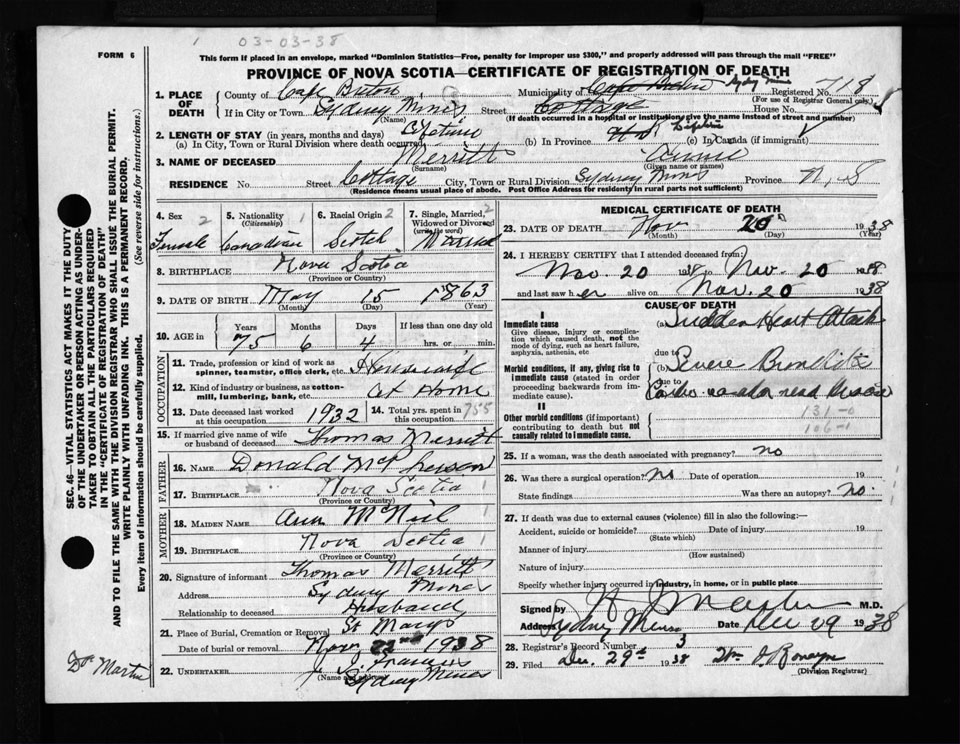 03-03-38
FORM 6
This form if placed in an envelope, marked "Dominion Statistics—Free, penalty for improper use $300," and properly addressed will pass through the mail "FREE"
PROVINCE OF NOVA SCOTIA—CERTIFICATE OF REGISTRATION OF DEATH
1. PLACE OF DEATH
County of Cape Breton Municipality of Cape Breton Syd Mines Registered No. 718
(For use of Registrar General only)
If in City or Town Sydney Mines Street Cottage House No.
(Name) (If death occurred in a hospital or institution, give the name instead of street and number)
2. LENGTH OF STAY (in years, months and days)
(a) In City, Town or Rural Division where death occurred Lifetime (b) In Province Lifetime (c) in Canada (if immigrant)
3. NAME OF DECEASED Merritt Annie
(Surname) (Given name or names)
RESIDENCE No. Street Cottage City, Town or Rural Division Sydney Mines Province N.S
(Residence means usual place of abode. Post Office Address for residents in rural parts not sufficient)
4. Sex 2 Female
5. Nationality 1 (Citizenship) Canadian
6. Racial Origin 2 Scotch
7. Single, Married, Widowed or Divorced (write the word) 2 Married
8. BIRTHPLACE Nova Scotia
(Province or Country)
9. DATE OF BIRTH May 15 1863
(Month) (Day) (Year)
10. AGE in Years Months Days If less than one day old
75 6 4 hrs. or min.
OCCUPATION
11. Trade, profession or kind of work as spinner, teamster, office clerk, etc. Housewife
12. Kind of industry or business, as cotton-mill, lumbering, bank, etc. At Home
13. Date deceased last worked at this occupation 1932
14. Total yrs. spent in this occupation 755
15. If married give name of wife or husband of deceased Thomas Merritt
FATHER
16. NAME Donald McPherson
17. BIRTHPLACE Nova Scotia 1
(Province or Country)
MOTHER
18. MAIDEN NAME Ann McNeil
19. BIRTHPLACE Nova Scotia 1
(Province or Country)
20. Signature of informant Thomas Merritt
Address Sydney Mines
Relationship to deceased Husband
21. Place of Burial, Cremation or Removal St Marys
Date of burial or removal Nov 22nd 1938
22. UNDERTAKER Francis
(Name and address) Sydney Mines
MEDICAL CERTIFICATE OF DEATH
23. DATE OF DEATH Nov 20 1938
(Month) (Day) (Year)
24. I HEREBY CERTIFY that I attended deceased from:
Nov. 20 1938 to Nov. 20 1938
and last saw her alive on Nov. 20 1938
CAUSE OF DEATH
I
Immediate cause
Give disease, injury or complication which caused death, not the mode of dying, such as heart failure, asphyxia, asthenia, etc
(a) Sudden Heart Attack
due to
Morbid conditions, if any, giving rise to immediate cause (stated in order proceeding backwards from immediate cause)
(b) Severe Bronchitis
due to
Cardio vascular renal disease
II
Other morbid conditions (if important) contributing to death but not causally related to immediate cause.
131-0
106-1
25. If a woman, was the death associated with pregnancy? no
26. Was there a surgical operation? no Date of operation 19
State findings Was there an autopsy? no.
27. If death was due to external causes (violence) fill in also the following:—
Accident, suicide or homicide? Date of injury 19
(State which)
Manner of injury
(How sustained)
Nature of injury
Specify whether injury occurred in industry, in home, or in public place
Signed by M.D.
Address Sydney Mines Date Dec 29 1938
28. Registrar's Record Number 3
29. Filed Dec. 29th 1938
(Division Registrar)
SEC. 46—VITAL STATISTICS ACT MAKES IT THE DUTY
OF THE UNDERTAKER OR PERSON ACTING AS UNDER-
TAKER TO OBTAIN ALL THE PARTICULARS REQUIRED
IN THE "CERTIFICATE OF REGISTRATION OF DEATH"
AND TO FILE THE SAME WITH THE DIVISION REGISTRAR WHO SHALL ISSUE THE BURIAL PERMIT.
WRITE PLAINLY WITH UNFADING INK. THIS IS A PERMANENT RECORD.
Every item of information should be carefully supplied. (See reverse side for instructions.)
Dr Martin